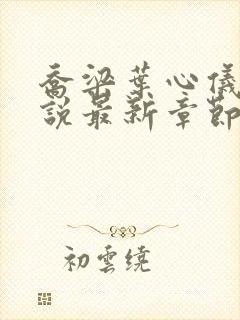 喬梁葉心儀
說最新章節
初雲繞